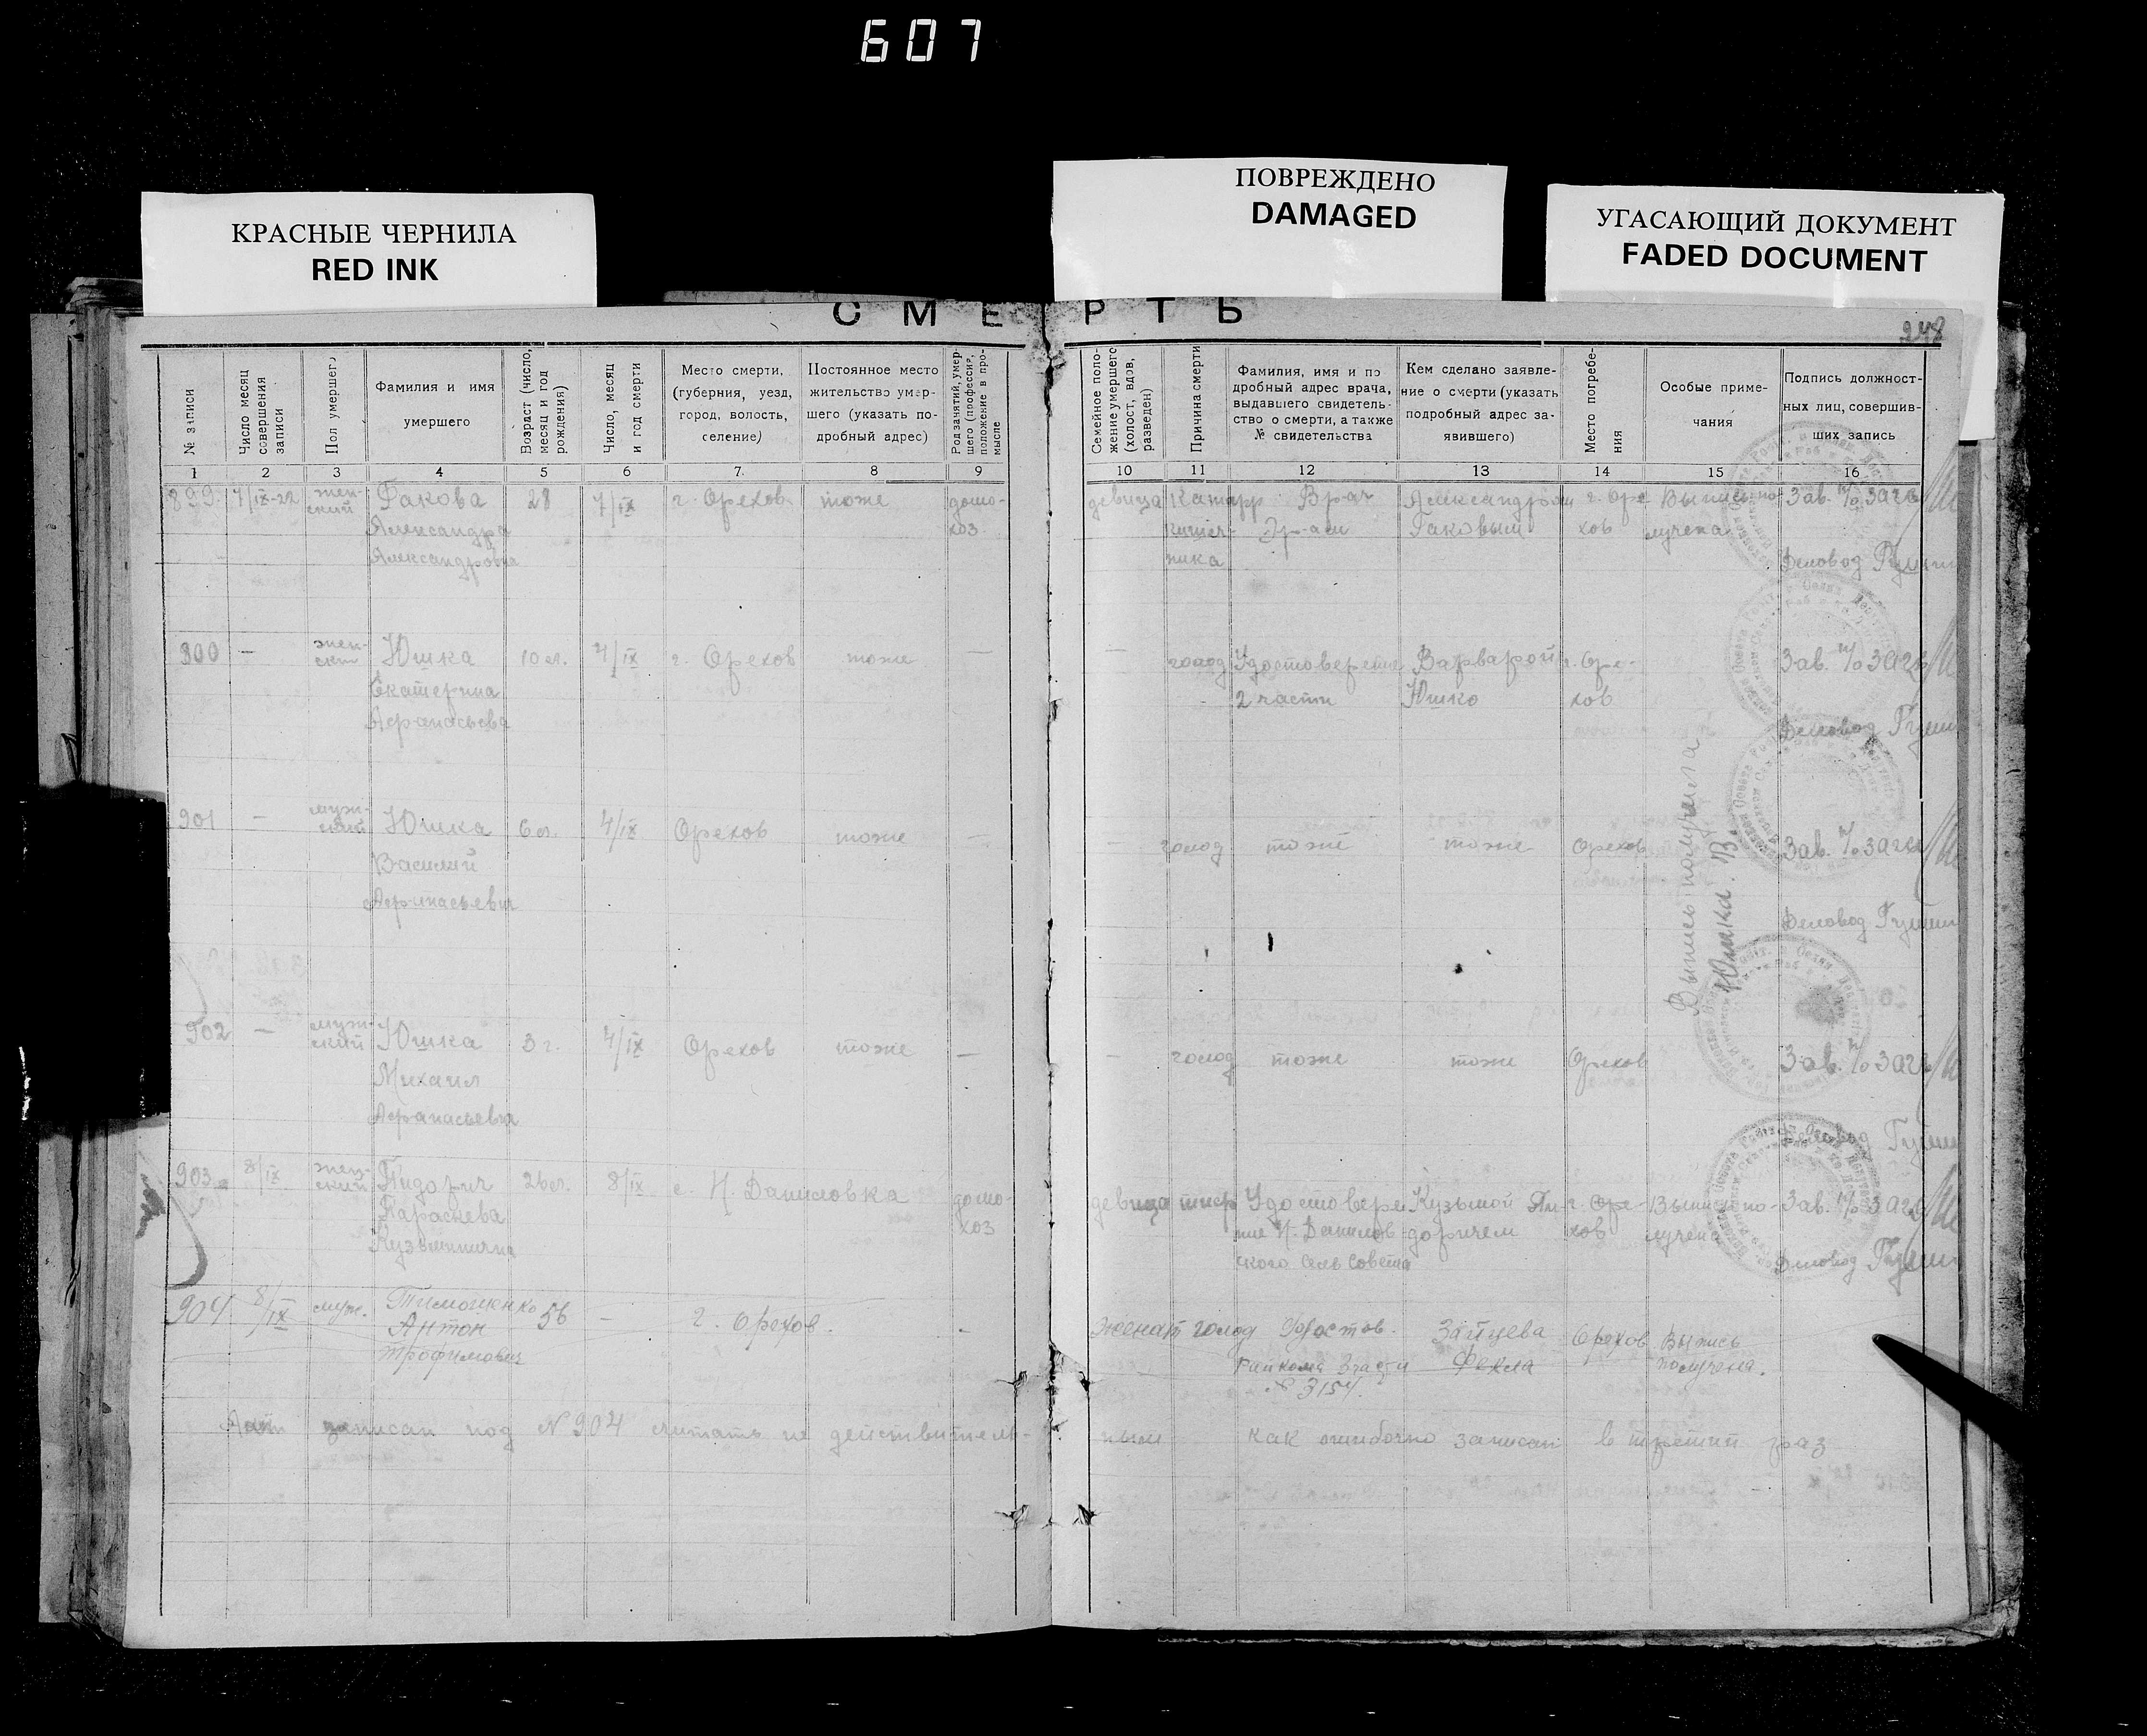 607
КРАСНЫЕ ЧЕРНИЛА
RED INK
ПОВРЕЖДЕНО
DAMAGED
УГАСАЮЩИЙ ДОКУМЕНТ
FADED DOCUMENT
СМЕРТЬ
248
№ записи
Число месяц совершения записи
Пол умершего
Фамилия и имя умершего
Возраст (число, месяц и год рождения)
Число, месяц и год смерти
Место смерти, (губерния, уезд, город, волость, селение)
Постоянное место жительство умершего (указать подробный адрес)
Род занятий, умершего (профессия, положение в промысле
Семейное положение умершего (холост, вдов, разведен)
Причина смерти
Фамилия, имя и подробный адрес врача, выдавшего свидетельство о смерти, а также № свидетельства
Кем сделано заявление о смерти (указать подробный адрес заявившего)
Место погребения
Особые примечания
Подпись должностных лиц, совершивших запись
1 2 3 4 5 6 7 8 9 10 11 12 13 14 15 16
899 7/IX-22 женский Гакова 28 7/IX г. Орехов тоже домо- девица Катарр Врач Александром г. Оре- Выпись по- Зав. п/о загс
Александра хоз кишеч- Гаковым хов лучена
Александровна ника Деловод
900 — женский Юшка 10 л. 4/IX г. Орехов тоже — — голод Удостоверение Варварой г. Оре- Зав. п/о загс
Екатерина 2 части Юшко хов
Афанасьевна Деловод
901 — мужской Юшка 6 л. 4/IX Орехов тоже — — голод тоже тоже Орехов Зав. п/о загс
Василий
Афанасьевич Деловод
Выпись получила
Юшка В.
902 — мужской Юшка 3 г. 4/IX Орехов тоже — — голод тоже тоже Орехов Зав. п/о загс
Михаил
Афанасьевич
903 8/IX женский Пидорич 26 л. 8/IX с. Н. Даниловка домо- девица тиф Удостовере- Кузьмой Пи- г. Оре- Выпись по- Зав. п/о загс
Параскева хоз ние Н. Данилов- доричем хов лучена
Кузьминична ского сель совета Деловод
904 8/IX муж. Тимошенко 56 — г. Орехов. - Женат голод Удостов. Зайцева Орехов Выпись
Антон Райкома 3 части Фекла получена.
Трофимович № 3154.
Акт записан под № 904 считать не действитель-
ным как ошибочно записан в третий раз